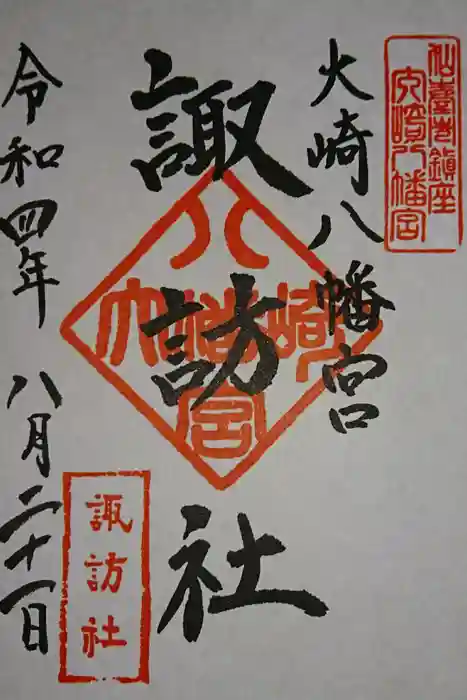 仙臺巿鎮座
大崎八幡宮
大崎八幡宮
諏訪社
八幡宮
大崎
諏訪社
令和四年八月二十一日